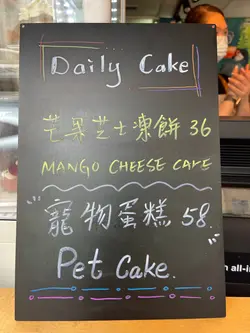 Daily Cake
芒果芝士凍餅 36
MANGO CHEESE CAKE
寵物蛋糕 58.
Pet Cake.
n all-in